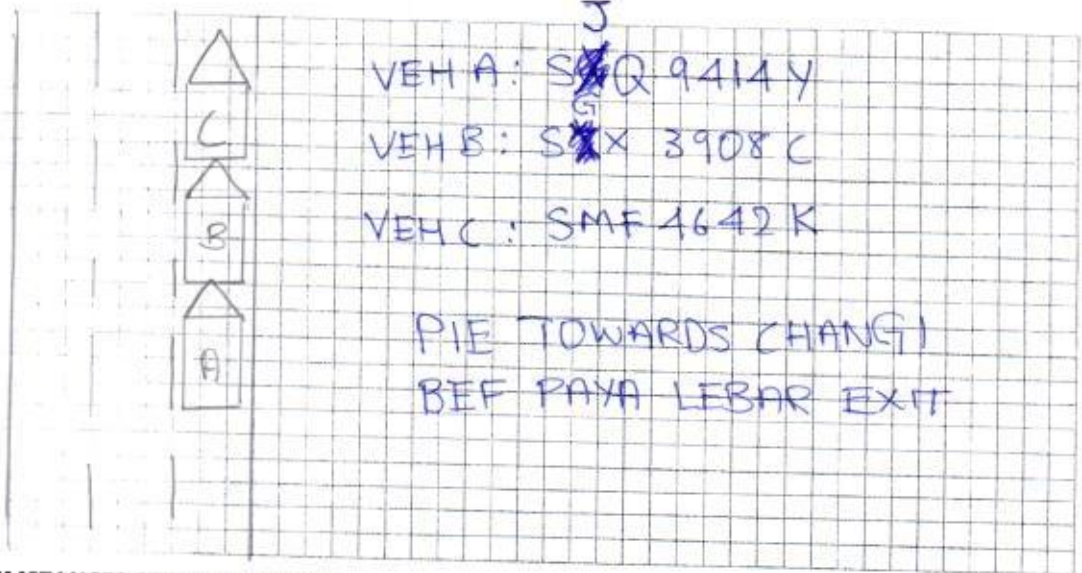 VEH A: SJQ 9414Y
C
VEH B: SGX 3908C
VEH C: SMF 4642K
B
PIE TOWARDS CHANGI
A
BEF PAYA LEBAR EXIT